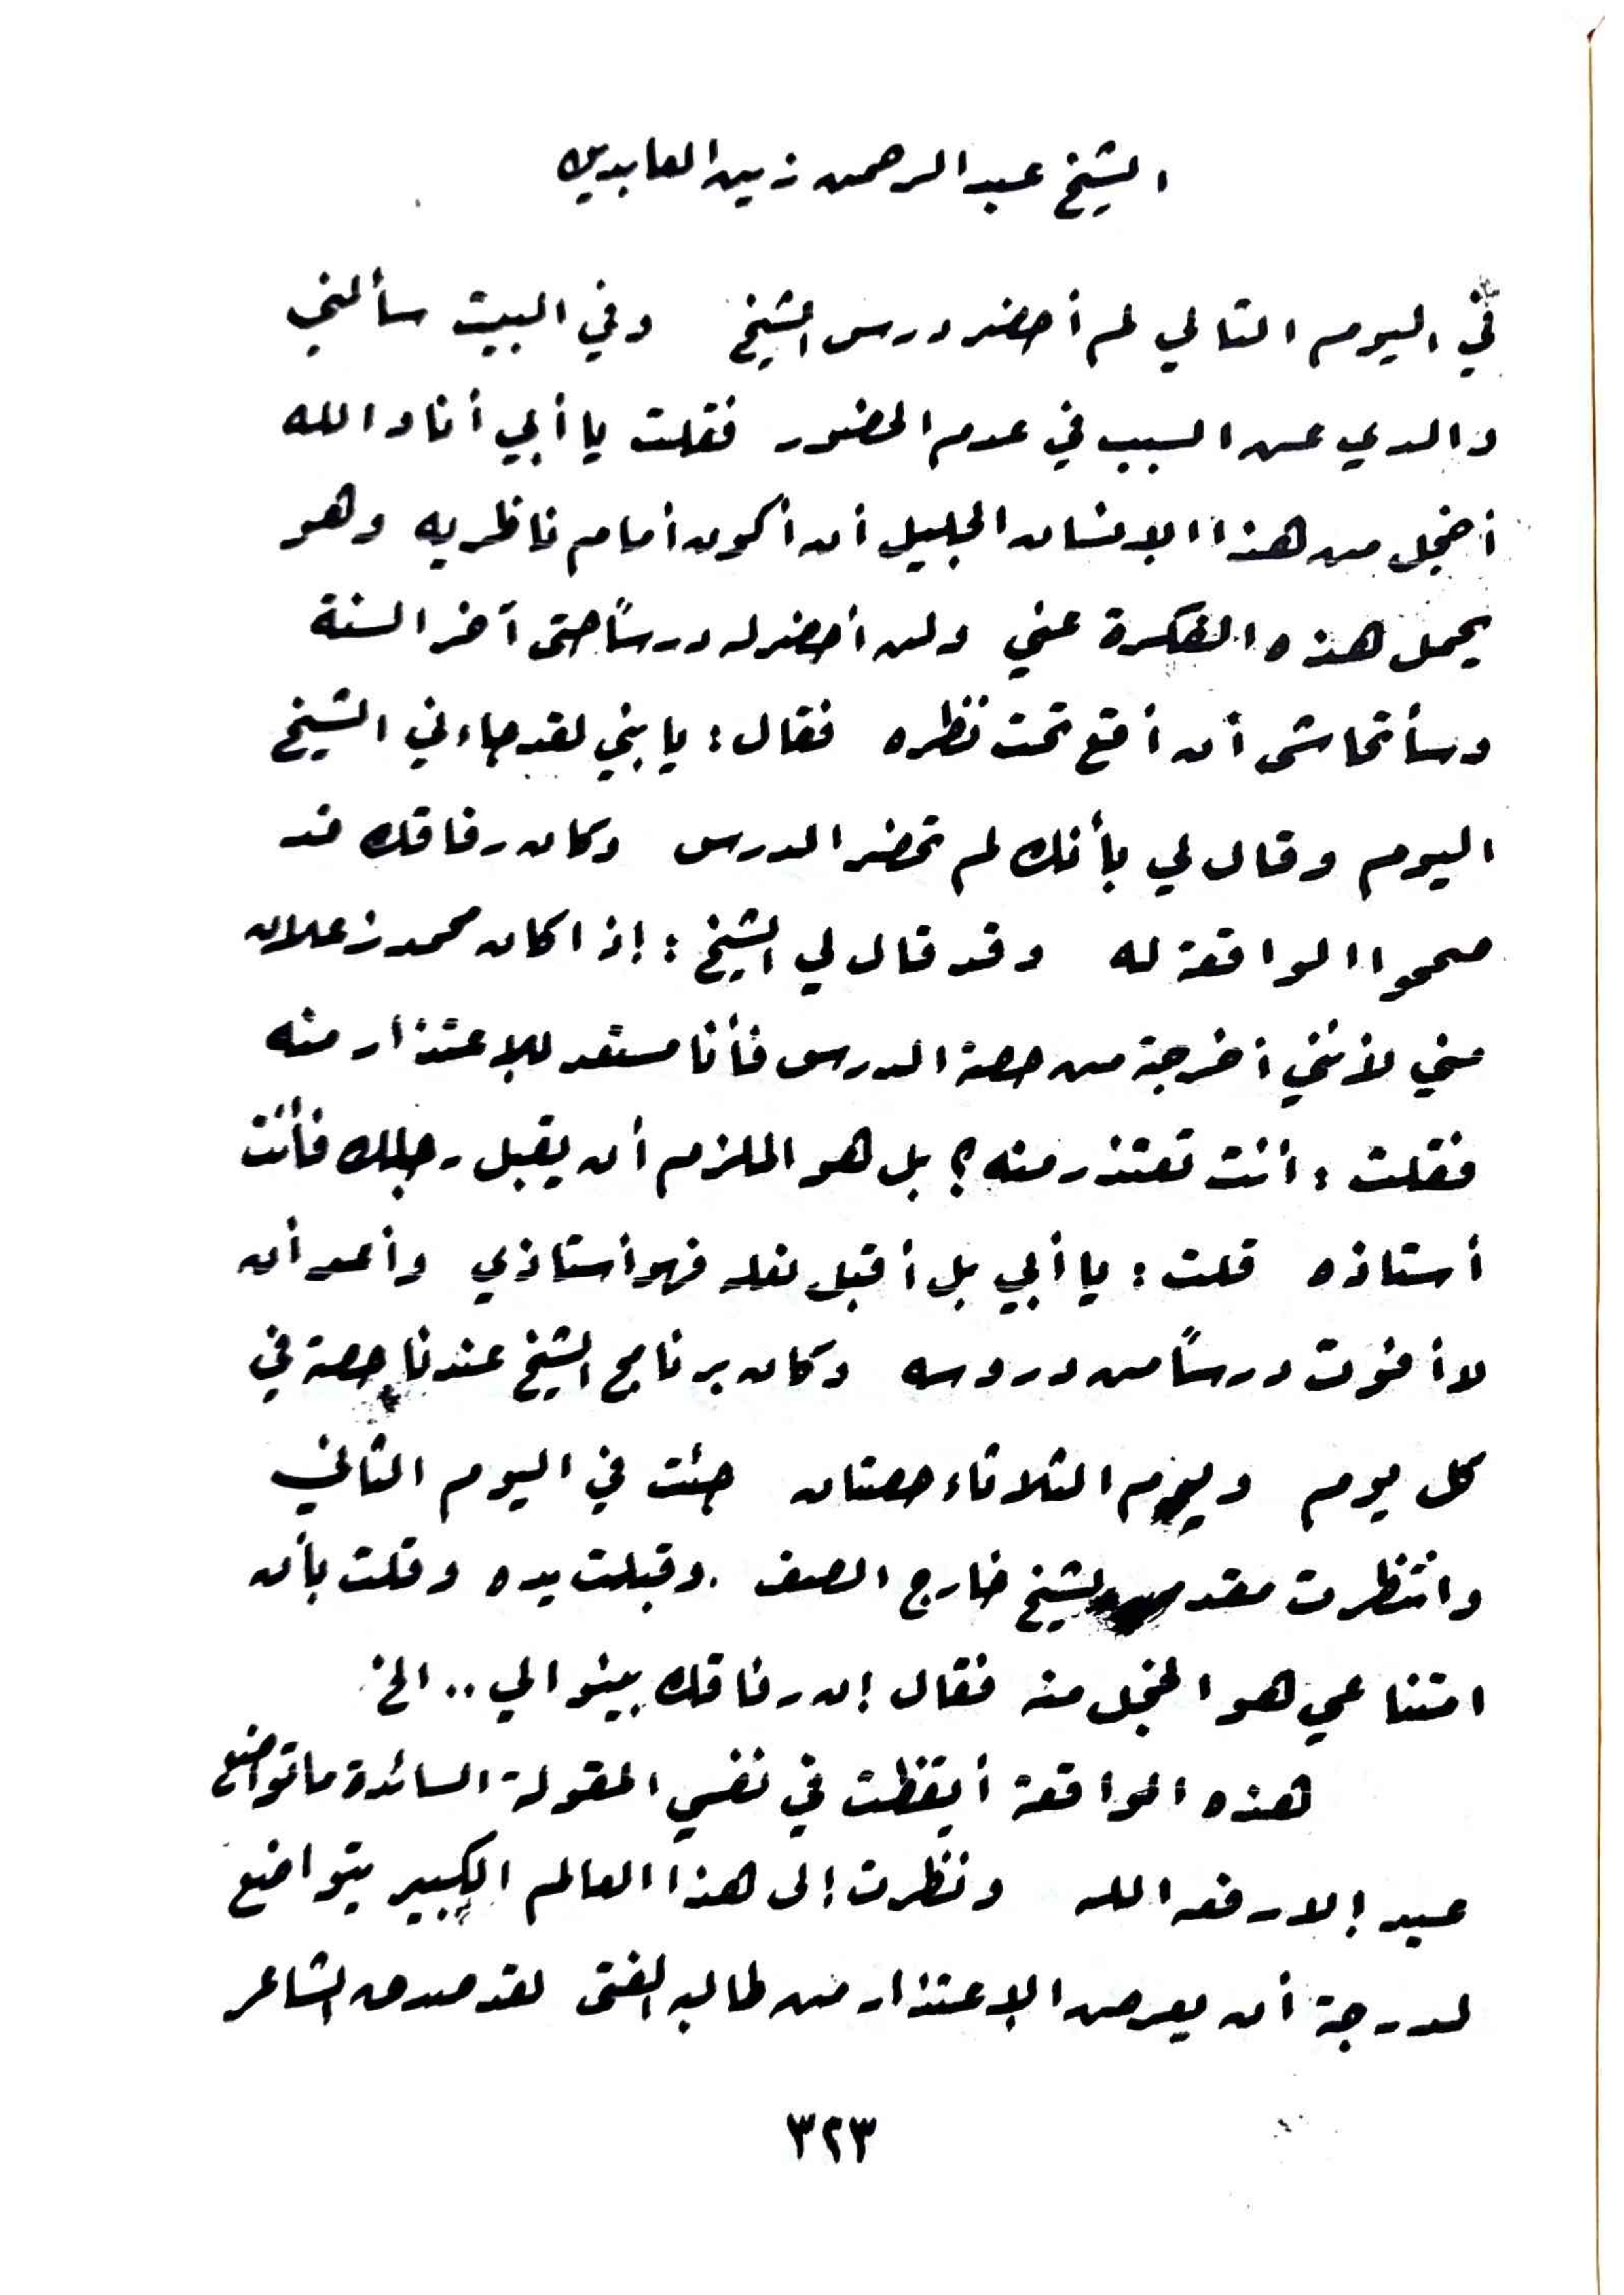 الشيخ عبد الرحمن زين العابدين
في اليوم التالي لم أحضر درس الشيخ وفي البيت سألني
والدي عن السبب في عدم الحضور فقلت يا أبي أنا والله
أخجل من هذا الإنسان الجليل أن أكون أمام ناظريه وهو
يحمل هذه الفكرة عني ولن أحضر له درساً حتى آخر السنة
وسأتحاشى أن أقع تحت نظره فقال : يا بني لقد جاءني الشيخ
اليوم وقال لي بأنك لم تحضر الدرس وكان رفاقك قد
صححوا الواقعة له وقد قال لي الشيخ : إذا كان محمد زعلان
مني لأنني أخرجته من حصة الدرس فأنا مستعد للإعتذار منه
فقلت : أنت تعتذر منه ؟ بل هو الملزم أن يقبل رجلك فأنت
أستاذه قلت : يا أبي بل أقبل نعله فهو أستاذي وأعد أن
لا أفوت درساً من دروسه وكان برنامج الشيخ عندنا حصة في
كل يوم ويوم الثلاثاء حصتان جئت في اليوم الثاني
وانتظرت مقدم الشيخ خارج الصف . وقبلت يده وقلت بأن
امتناعي هو الخجل منه فقال إن رفاقك بينوا لي .. الخ
هذه الواقعة أيقظت في نفسي المقولة السائدة ما تواضع
عبد إلا رفعه الله ونظرت إلى هذا العالم الكبير يتواضع
لدرجة أن يعرض الإعتذار من طالبه الفتى لقد صدق الشاعر
٣٢٣